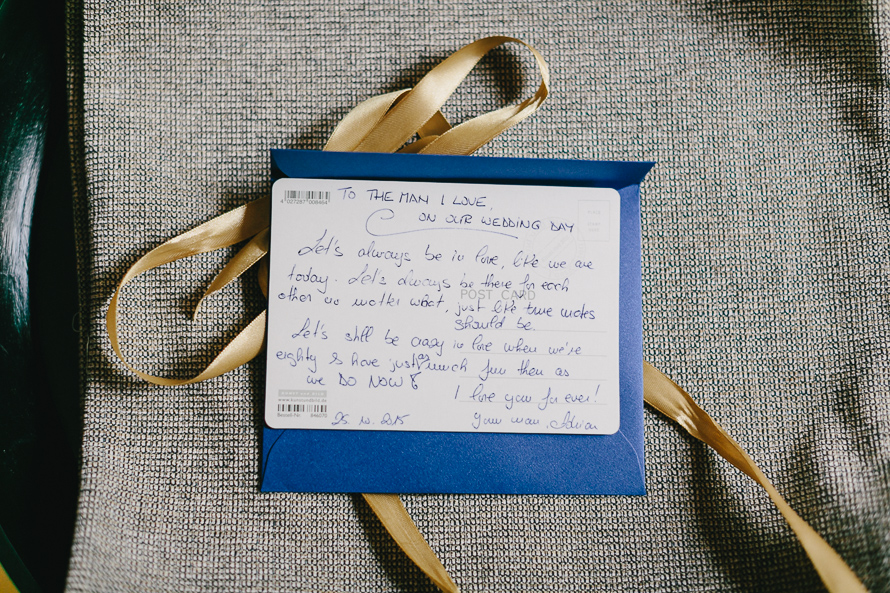 4 027287 008484
TO THE MAN I LOVE,
ON OUR WEDDING DAY
Let's always be in love, like we are
today. Let's always be there for each
other no matter what, just like true mates
POST CARD
should be.
Let's still be crazy in love when we're
eighty & have just as much fun then as
we DO NOW
I love you for ever!
Bestell-Nr. 846070
25. 10. 2015
your man, Adrian